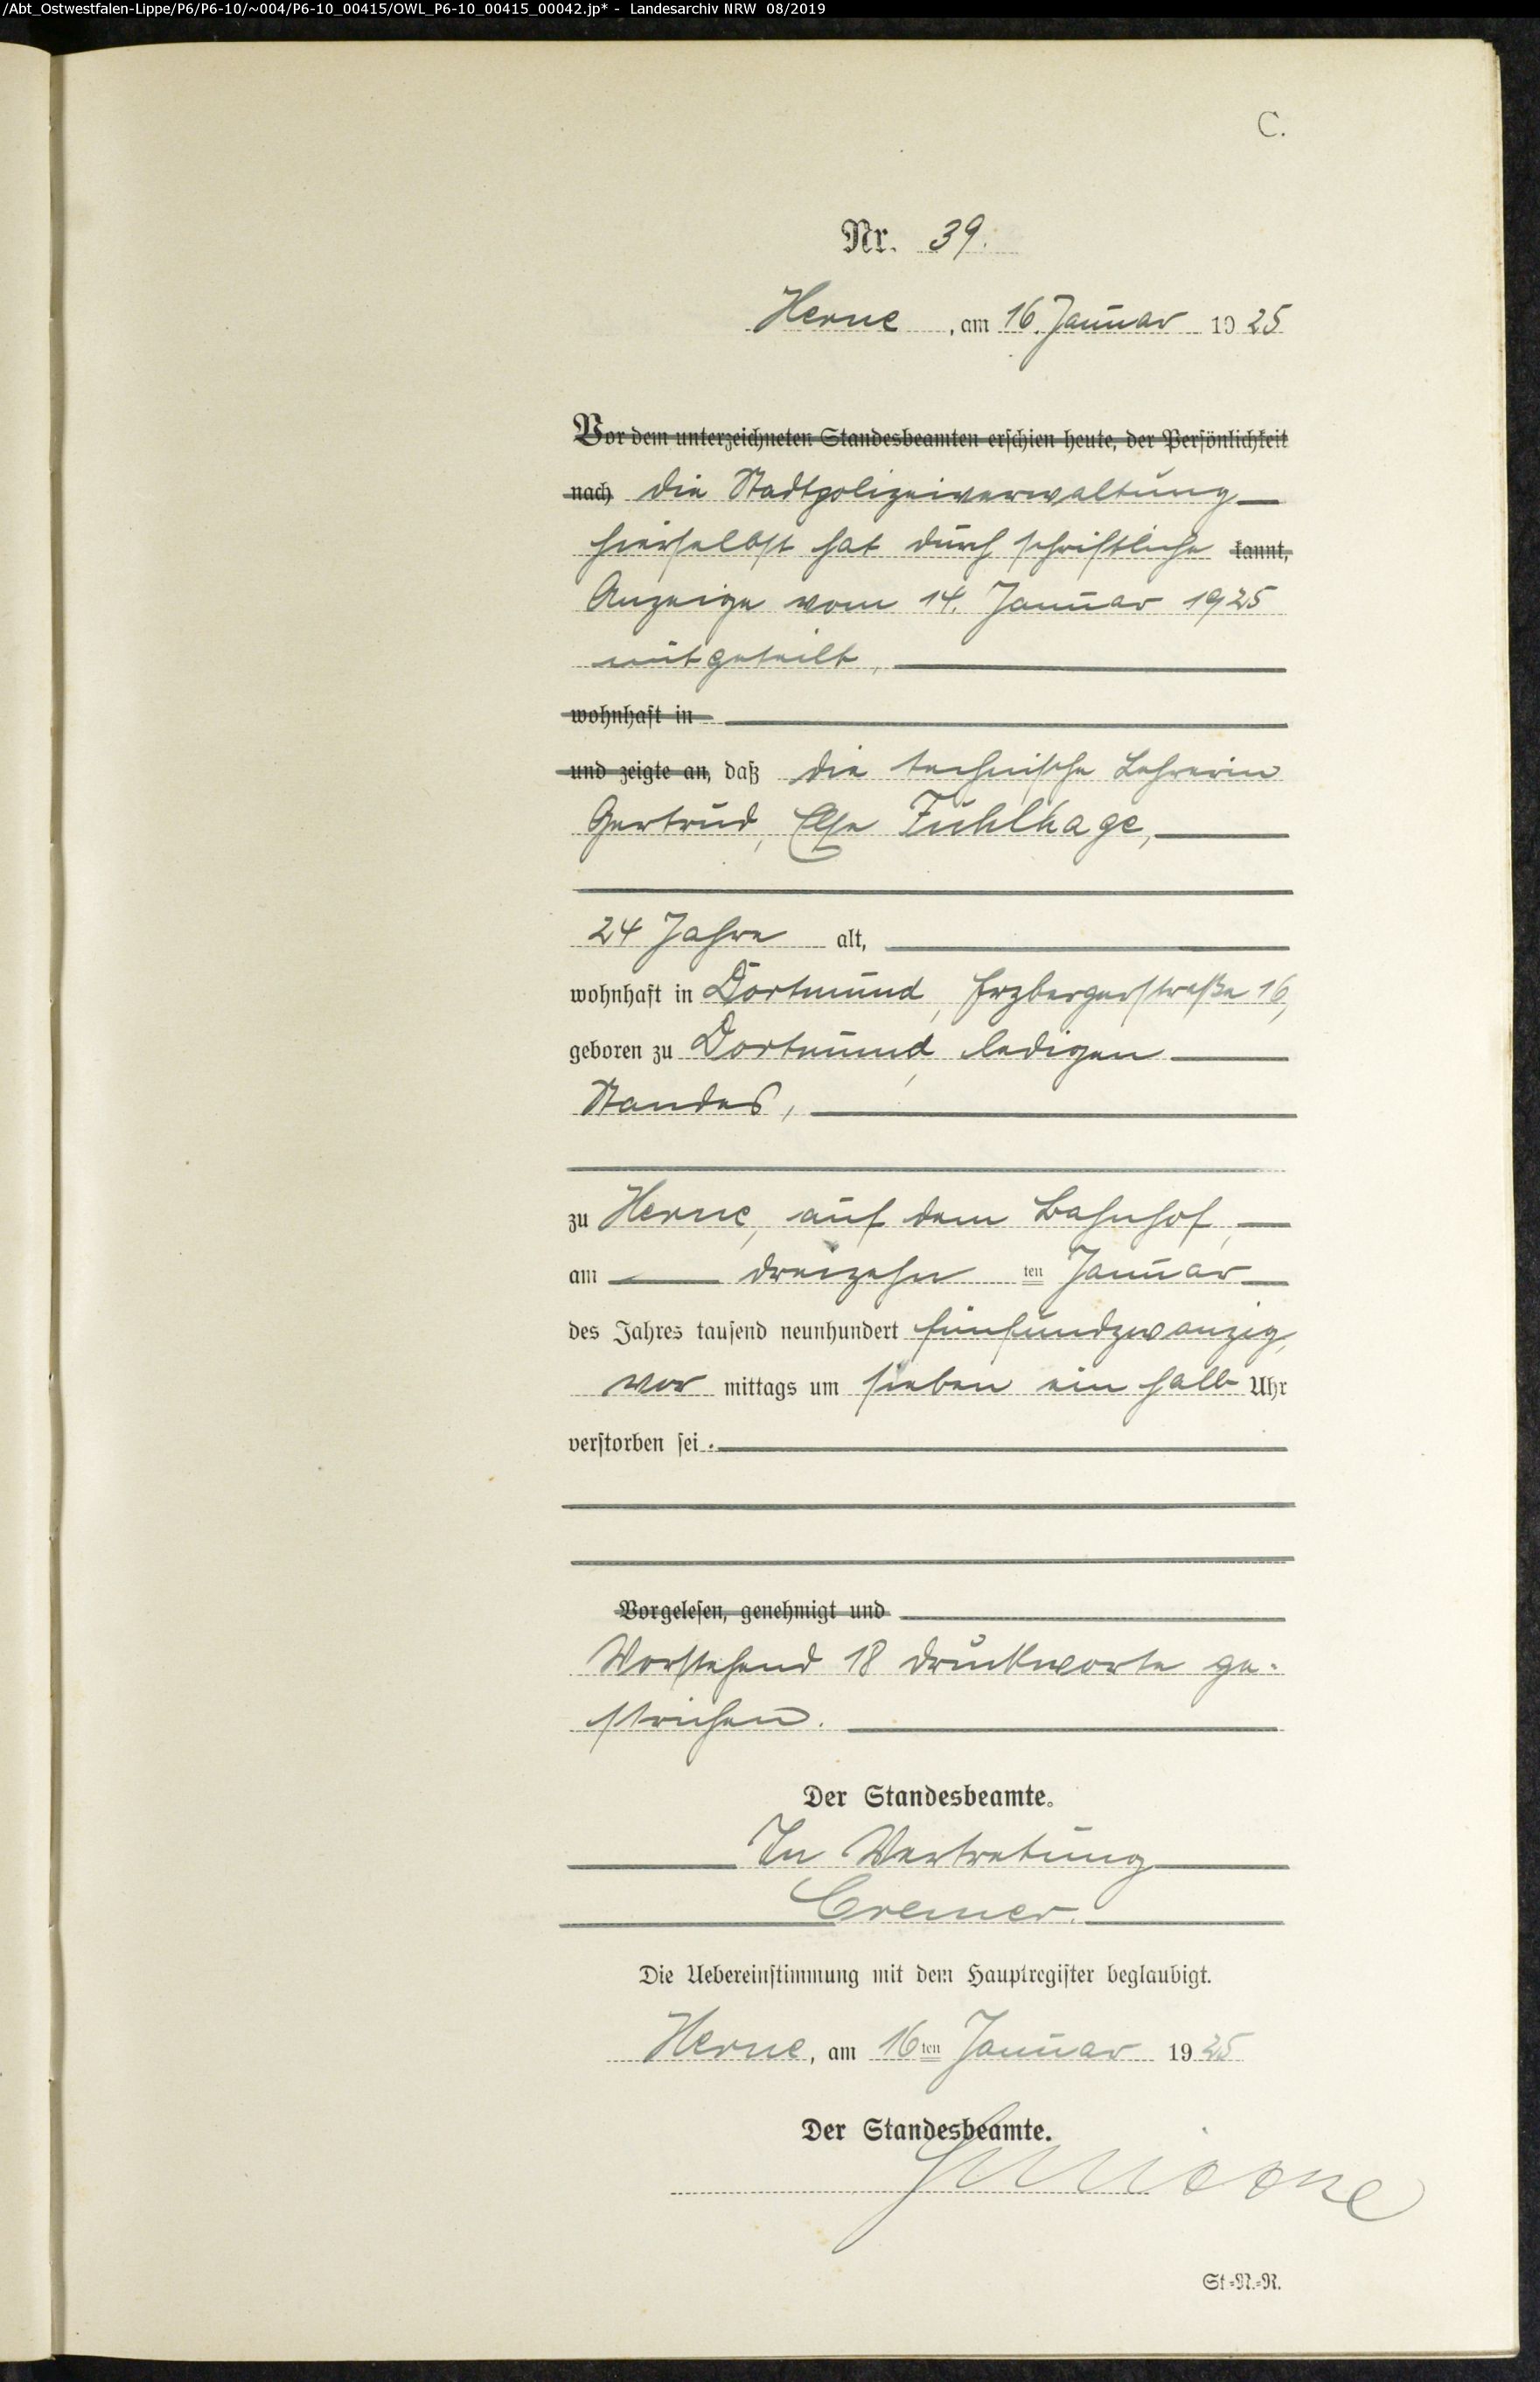 /Abt_Ostwestfalen-Lippe/P6/P6-10/~004/P6-10_00415/OWL_P6-10_00415_00042.jp* - Landesarchiv NRW 08/2019
C.
Nr. 39.
Herne, am 16. Januar 1925
Vor dem unterzeichneten Standesbeamten erschien heute, der Persönlichkeit
nach die Stadtpolizeiverwaltung
hierselbst hat durch schriftliche kannt,
Anzeige vom 14. Januar 1925
mitgeteilt,
wohnhaft in
und zeigte an, daß die technische Lehrerin
Gertrud, Else Fühlhage,
24 Jahre alt,
wohnhaft in Dortmund, Erzbergerstraße 16,
geboren zu Dortmund, ledigen
Standes,
zu Herne, auf dem Bahnhof,
am dreizehn ten Januar
des Jahres tausend neunhundert fünfundzwanzig,
vor mittags um sieben ein halb Uhr
verstorben sei.
Vorgelesen, genehmigt und
Vorstehend 18 Druckworte ge-
strichen.
Der Standesbeamte.
In Vertretung
Cremer.
Die Uebereinstimmung mit dem Hauptregister beglaubigt.
Herne, am 16ten Januar 1925
Der Standesbeamte.
St.=N.=R.